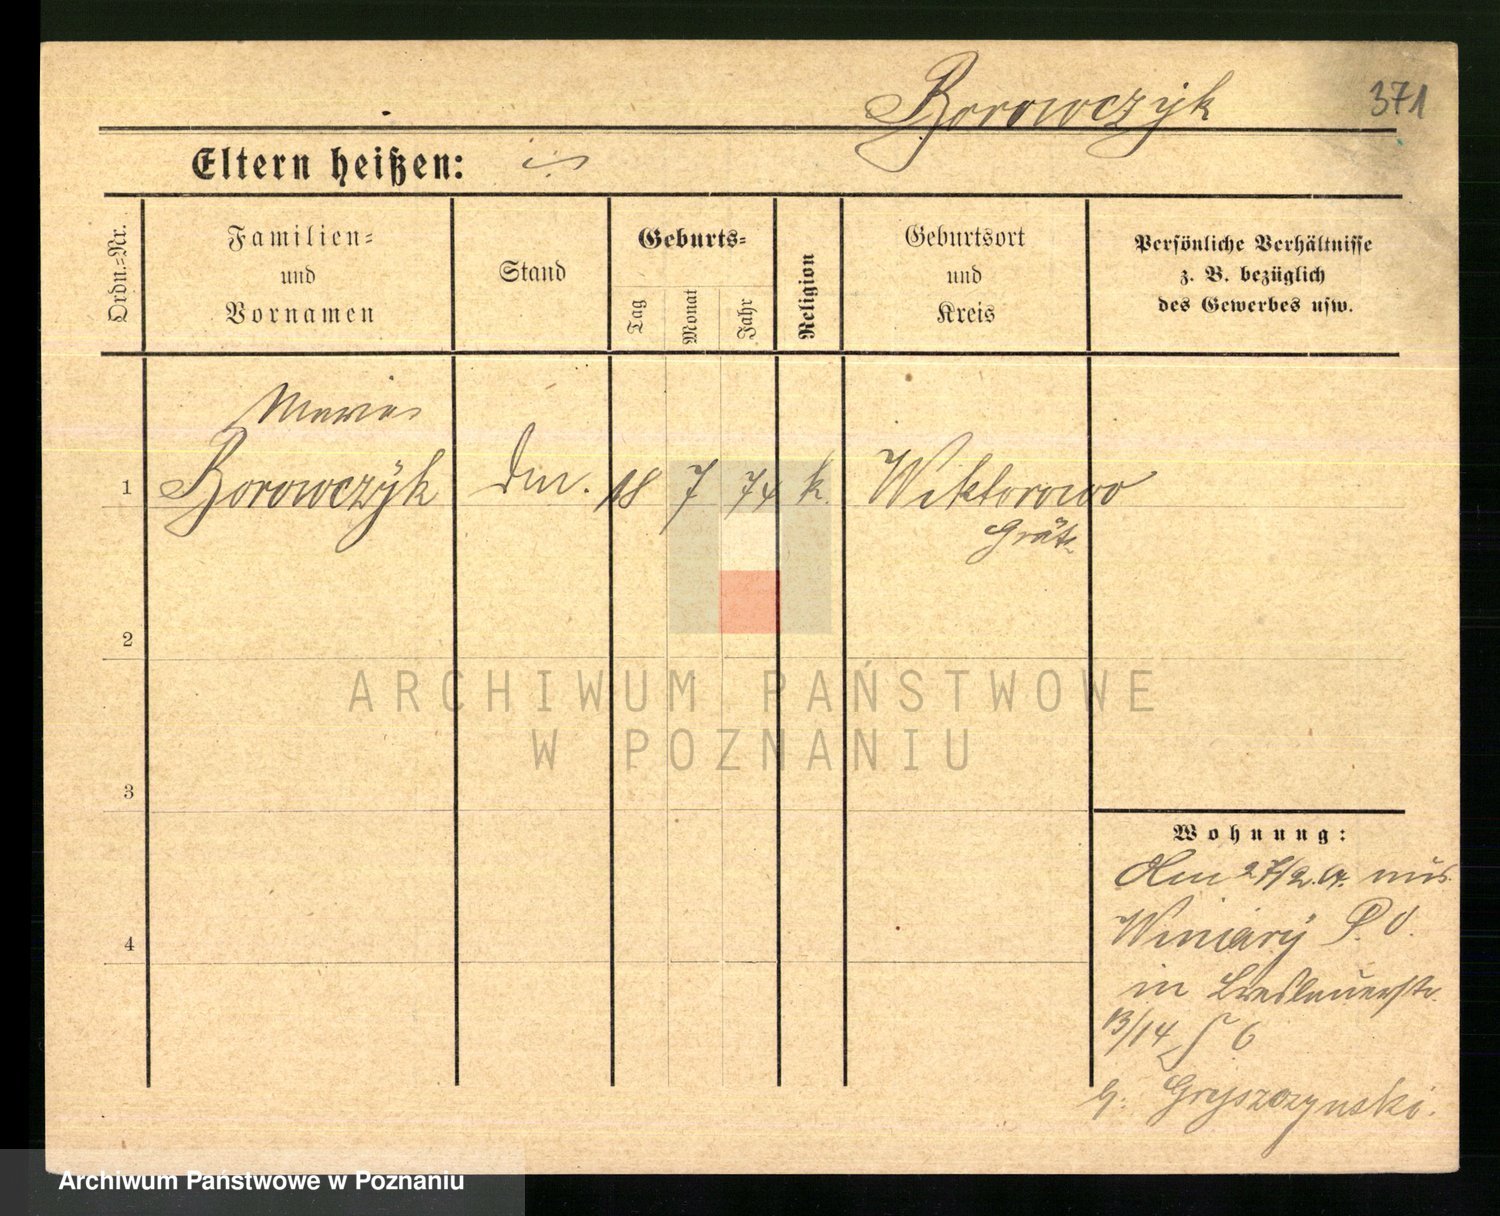 Borowczyk
371
Eltern heißen:
Ordn.-Nr.
Familien-
und
Vornamen
Stand
Geburts-
Tag
Monat
Jahr
Religion
Geburtsort
und
Kreis
Persönliche Verhältnisse
z. B. bezüglich
des Gewerbes usw.
1
Borowczyk
18 7 74 k.
Wiktorowo
Grätz
2
3
4
Wohnung:
Am 27/2.
Winiary P. O.
in Breslauerstr.
13/14
b. Gryszczynski.
ARCHIWUM PAŃSTWOWE
W POZNANIU
Archiwum Państwowe w Poznaniu